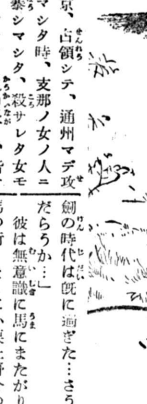 京、占領シテ、通州マデ攻
マシタ時、支那ノ女ノ人ニ
シマシタ、殺サレタ女モ
劍の時代は既に過ぎた…さう
だらうか…」
彼は無意識に馬にまたがり